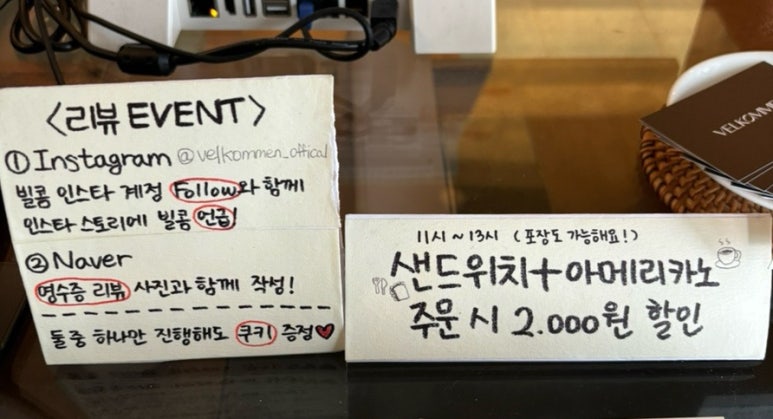 <리뷰 EVENT>
① Instagram @velkommen_offical
빌콤 인스타 계정 Follow와 함께
인스타 스토리에 빌콤 언급!
② Naver
영수증 리뷰 사진과 함께 작성!
둘중 하나만 진행해도 쿠키 증정♥
11시~13시 (포장도 가능해요!)
샌드위치+아메리카노
주문 시 2.000원 할인
VELKOMME